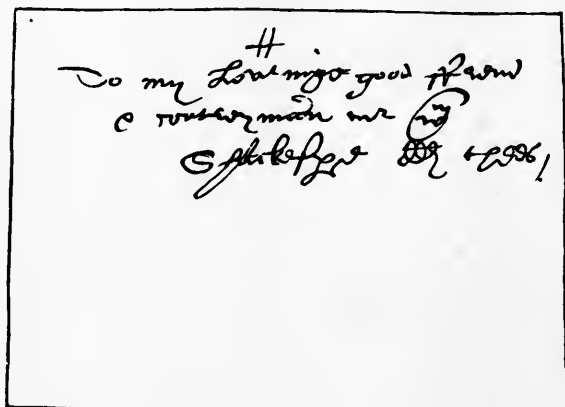 H
To my Loveinge good ffrend
& contreymann mr wm
Shackespere thees